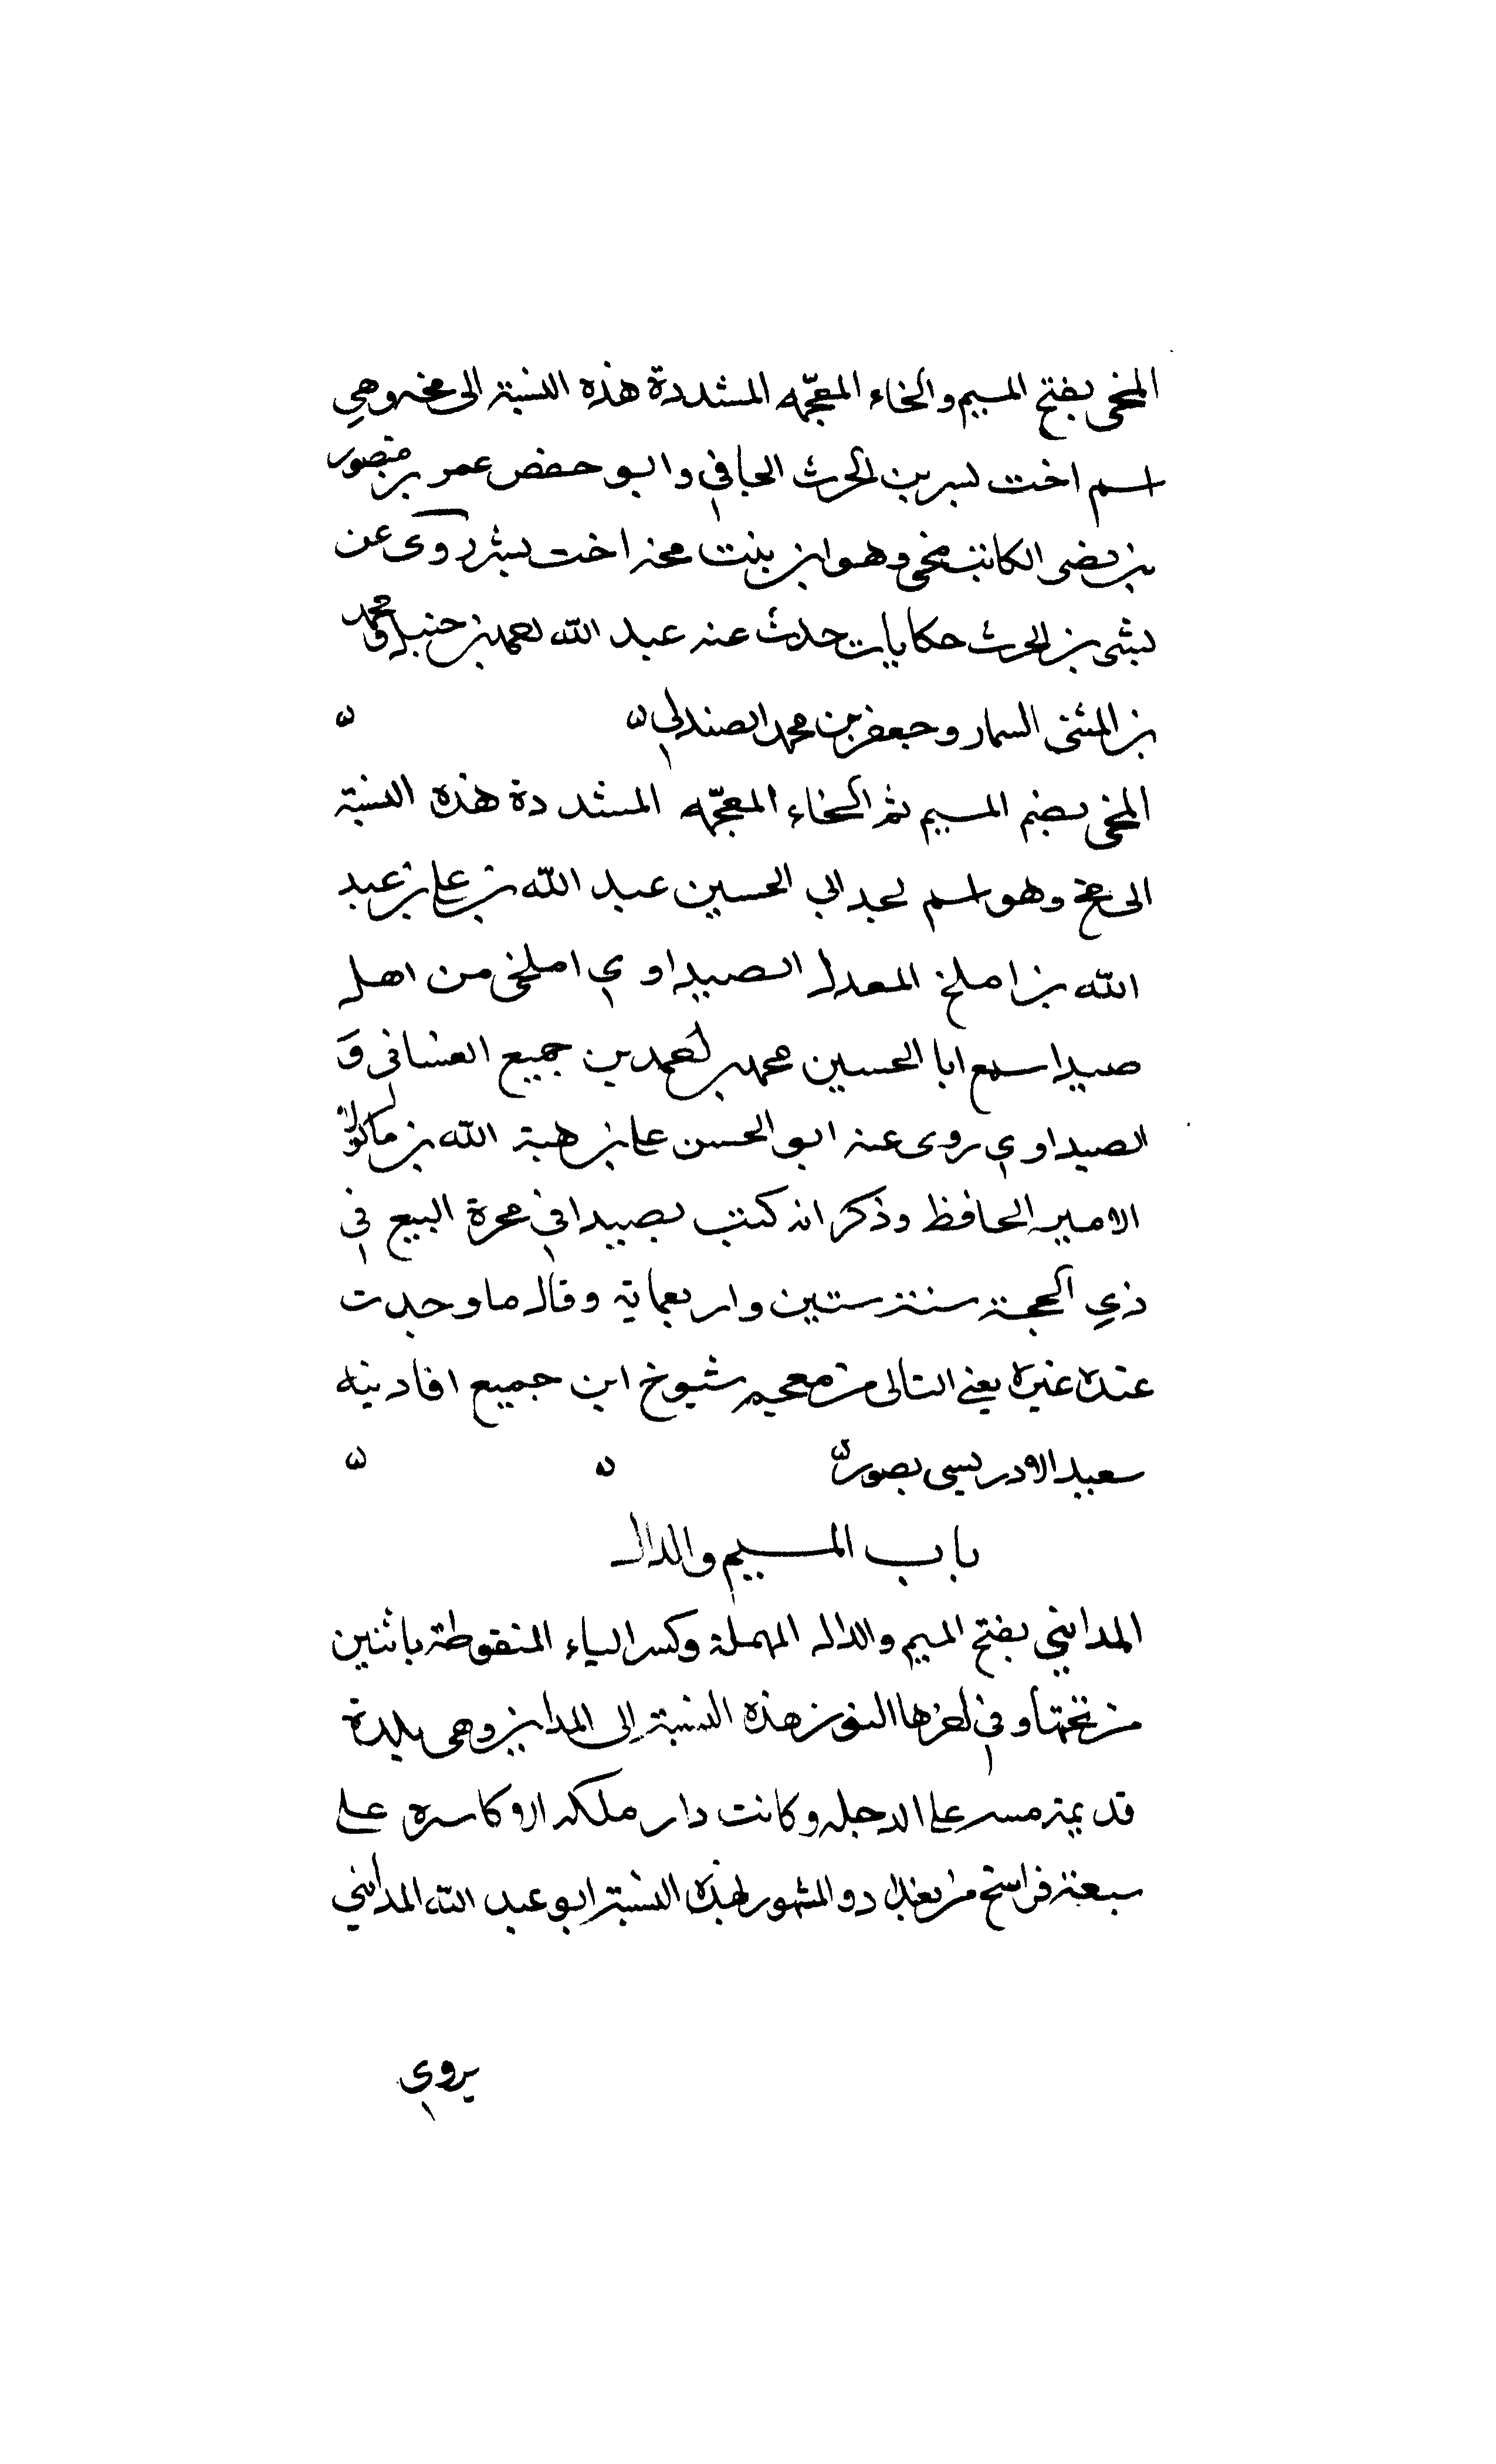 المخى بفتح الميم والخاء المعجمه المشددة هذه النسبة الى مخه وهي
اسم اخت بسر بن الحرث الحافي وابو حفص عمر بن منصور
بن نصى الكاتب مخى وهو ابن بنت مخه اخت بشر روى عن
بشى بن الحرث حكايات حدث عنه عبد الله احمد بن حنبل ومحمد
بن المثنى السمار وجعفر بن محمد الصندلي ه ه
المخى بضم الميم ثم الخاء المعجمه المشددة هذه النسبة
الى مخ وهو اسم لجد ابي الحسين عبد الله بن علي بن عبد
الله بن املخ المعدل الصيداوي املخى من اهل
صيدا سمع ابا الحسين محمد بن احمد بن جميع الغسافي و
الصيداوي روى عنه ابو الحسن علي بن هبة الله بن ماكولا
الامير الحافظ وذكر انه كتب بصيدا في محرة البيع في
ذي الحجة سنة ستين واربعماية وقال ما وجدت
عنده غيره يعني التالى من معجم شيوخ ابن جميع افادنيه
سعيد الادريسى بصور ه ه ه
باب الميم والدال
المدايني بفتح الميم والدال المهملة وكسر الياء المنقوطة باثنين
من تحتها وفي اخرها النون هذه النسبة الى المداين وهى بلدة
قديمة على الدجله وكانت دار مملكه على
سبعة فراسخ من بغداد والمشهور بهذه النسبة ابو عبد الله المدايني
يروي